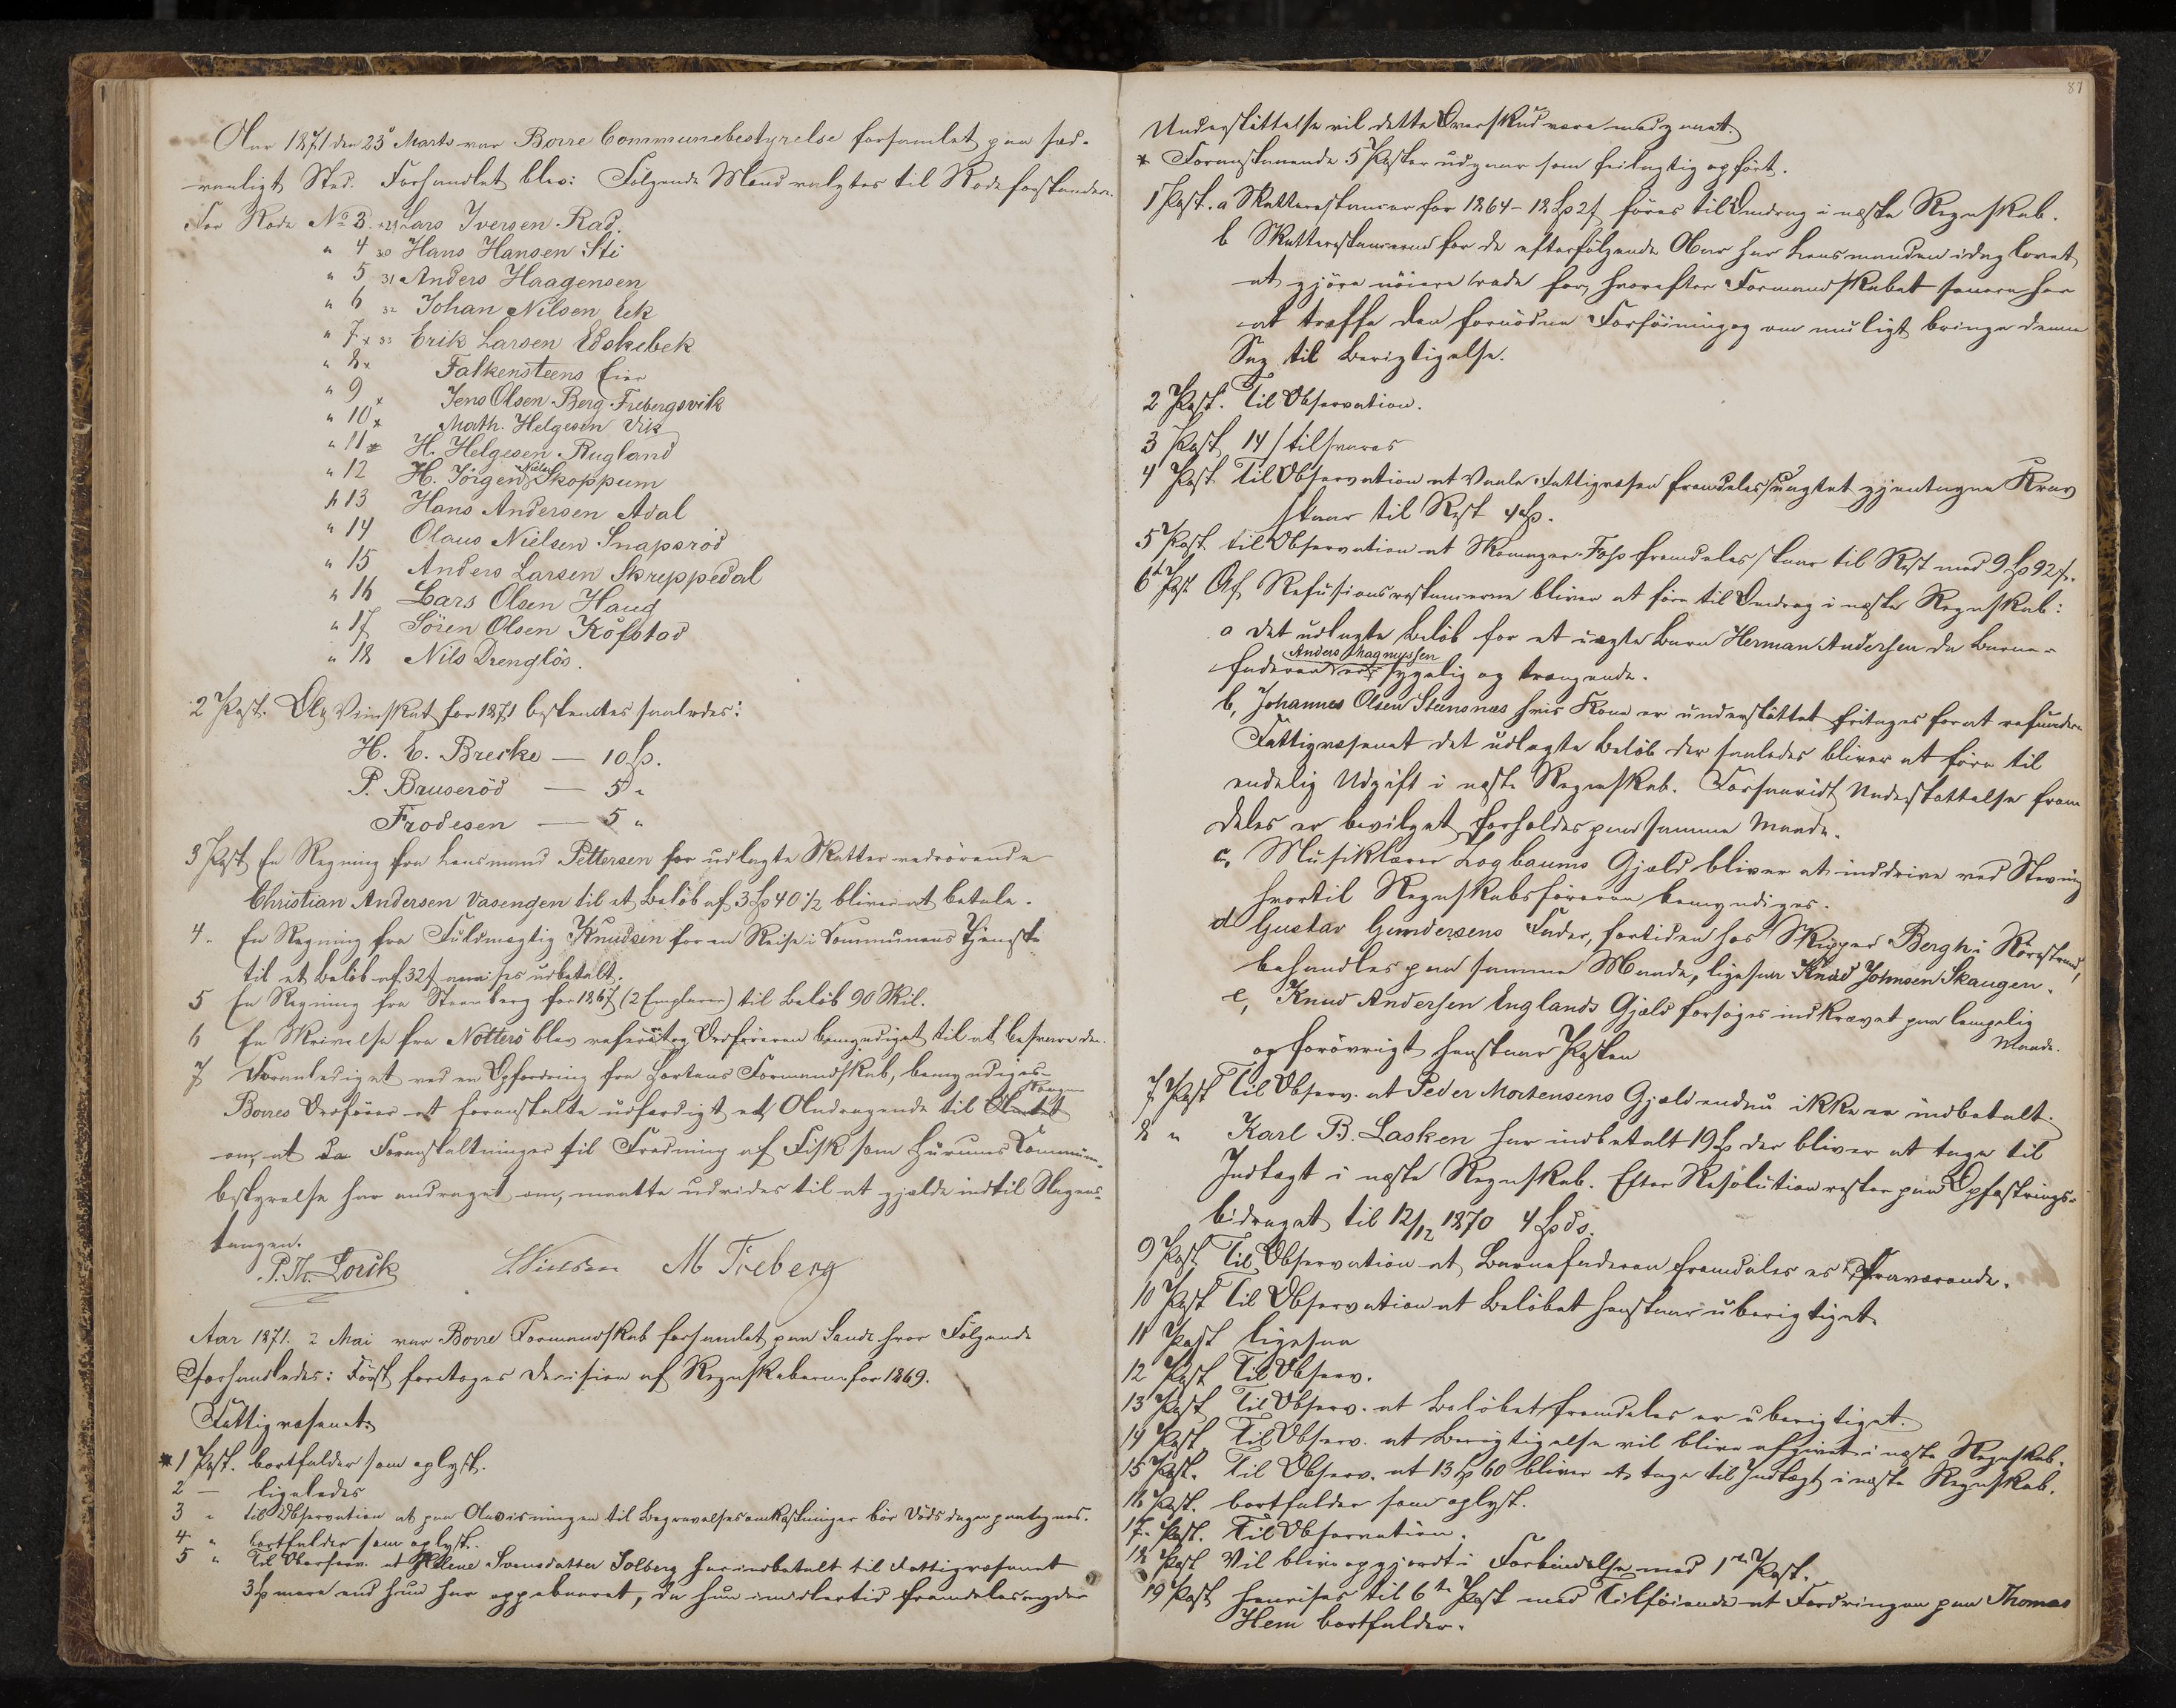 Aar 1871 den 23de Marts var Borre Communebestyrelse forsamlet paa sæd-
vanligt Sted. Forhandlet blev: Følgende Mænd valgtes til Rodeforstandere.
For Rode No 3. 29 Lars Iversen Rad.
" 4 30 Hans Hansen Sti
" 5 31 Anders Haagensen
" 6 32 Johan Nilsen Eik
" 7 x 33 Erik Larsen Edskebek
" 8 x Falkensteens Eier
" 9 x Jens Olsen Berg. Frebergsvik
" 10 x Math. Helgesen Vik
" 11 x H. Helgesen Rugland
" 12 H. Jörgen Nielsen Skoppum
" 13 Hans Andersen Adal
" 14 Olaus Nielsen Snapsröd
" 15 Anders Larsen Skreppedal
" 16 Lars Olsen Haug
" 17 Sören Olsen Kofstad
" 18 Nils Drenglös.
2 Post. Øl og Viinskat for 1871 bestemtes saaledes:
H. E. Brecke — 10 Sp.
P. Bruseröd — 5 "
Frodesen — 5 "
3 Post En Regning fra Lensmand Pettersen for udlagte Skatter vedrörende
Christian Andersen Vasengen til et Belöb af 3 Sp 40 1/2 bliver at betale.
4 " En Regning fra Fuldmægtig Knudsen for en Reise i Communens Tjeneste
til et Belöb af 32 s anvises udbetalt.
5 En Regning fra Steenberg for 1867 (2 Exemplarer) til Belöb 90 Skil.
6 En Skrivelse fra Nötterö blev refereret og Ordföreren bemyndiget til at besvare den.
7 Foranlediget ved en Opfordring fra Hortens Formandskab, bemyndiges
Borres Ordförer at foranstalte udfærdiget et Andragende til Kongen
om, at de Foranstaltninger til Fredning af Fisk som Hurums Commune-
bestyrelse har andraget om, maatte udvides til at gjælde indtil Slagens-
tangen.
P. Th. Lorck M Freberg
Aar 1871. 2 Mai var Borre Formandskab forsamlet paa Sande hvor Fölgende
Forhandledes: Först foretoges Decision af Regnskaberne for 1869.
Fattigvæsenet.
* 1 Post. bortfalder som oplyst.
2 — ligeledes
3 " til Observation at paa Anvisningen til Begravelsesomkostninger bör Dödsdagen paategnes.
4 " bortfalder som oplyst.
5 " Til Observ. at Helene Svensdatter Solberg har indbetalt til Fattigvæsenet
3 Sp mere end hun har oppebaaret, da hun imidlertid fremdeles nyder
87
Understöttelse vil dette Overskud være medgaaet.
* Foranstaaende 5 Poster udgaar som feilagtig opfört.
1 Post. a Skatterestancer for 1864 - 18 Sp 2 s föres til Omdrag i næste Regnskab.
b Skatterestancerne for de efterfölgende Aar har Lensmanden idag lovet
at gjöre nöiere rede for, hvorefter Formandskabet senere har
at træffe den fornödne Forföining og om muligt bringe denne
Sag til Berigtigelse.
2 Post. Til Observation.
3 Post 14 s tilsvares
4 Post Til Observation at Vaale Fattigvæsen fremdeles uagtet gjentagne Krav
staar til Rest 4 Sp.
5 Post til Observation at Skomager Foss fremdeles staar til Rest med 9 Sp 92 s.
6te Post Af Refusionsrestancerne bliver at före til Omdrag i næste Regnskab:
a det udlagte Belöb for et uægte Barn Herman Andersen da Barne-
faderen Anders Magnussen er sygelig og trængende.
b, Johannes Olsen Steensnæs hvis Kone er understöttet fritages for at refundere
Fattigvæsenet det udlagte Belöb der saaledes bliver at före til
endelig Udgift i næste Regnskab. Forsaavidt Understöttelse frem
deles er bevilget forholdes paa samme Maade.
c, Musiklærer Logbaums Gjæld bliver at inddrive ved Stevning
hvortil Regnskabsföreren bemyndiges.
d Gustav Gundersens Fader, fortiden hos Skipper Bergh i Rörestrand,
behandles paa samme Maade, ligesaa Knud Johnsen Skaugen.
e, Knud Andersen Englands Gjæld forsöges indkrævet paa lempelig
Maade.
og forövrigt henstaar Posten
7 Post Til Observ. at Peder Mortensens Gjæld endnu ikke er indbetalt.
8 " Karl B. Lasken har indbetalt 19 Sp der bliver at tage til
Indtægt i næste Regnskab. Efter Resolution rester paa Opfostrings-
bidraget til 12/12 1870 4 Sp ds.
9 Post Til Observation at Barnefaderen fremdeles er fraværende.
10 Post Til Observation at Belöbet henstaar uberigtiget.
11 Post ligesaa
12 Post Til Observ.
13 Post Til Observ. at Belöbet fremdeles er uberigtiget.
14 Post Til Observ. at Berigtigelse vil blive afgivet i næste Regnskab.
15 Post. Til Observ. at 13 Sp 60 bliver at tage til Indtægt i næste Regnskab.
16 Post. bortfalder som oplyst.
17 Post. Til Observation.
18 Post Vil blive opgjordt i Forbindelse med 1ste Post.
19 Post henvises til 6te Post med Tilföiende at Fordringen paa Thomas
Hem bortfalder.